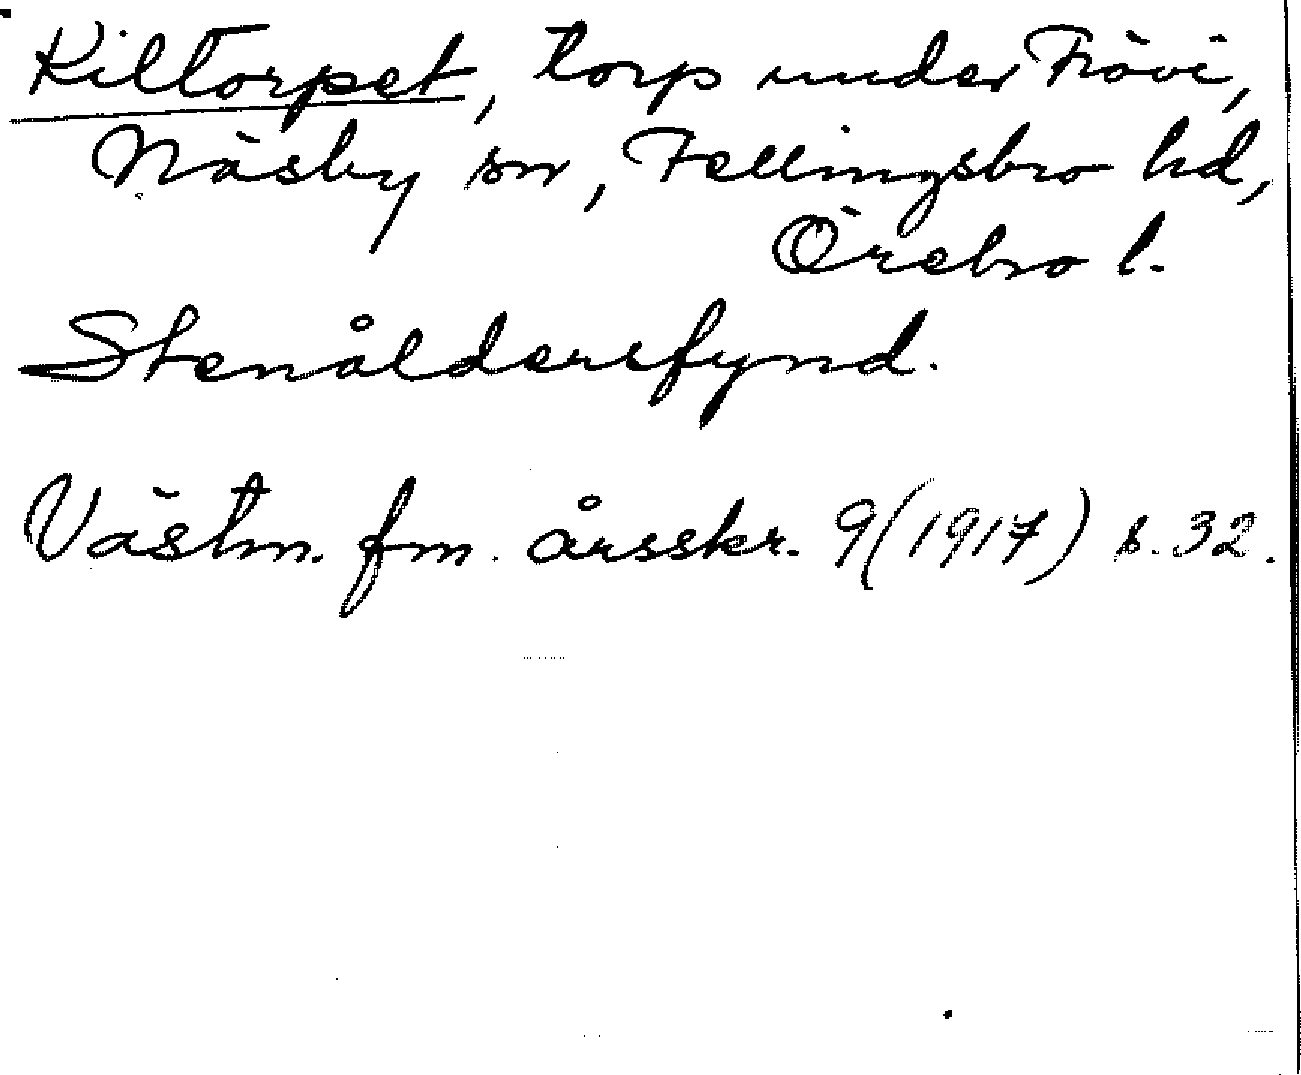 Kiltorpet, torp under Frövi,
Näsby sn, Fellingsbro hd,
Örebro l.
Stenåldersfynd.
Västm. fm. årsskr. 9(1917) s. 32.